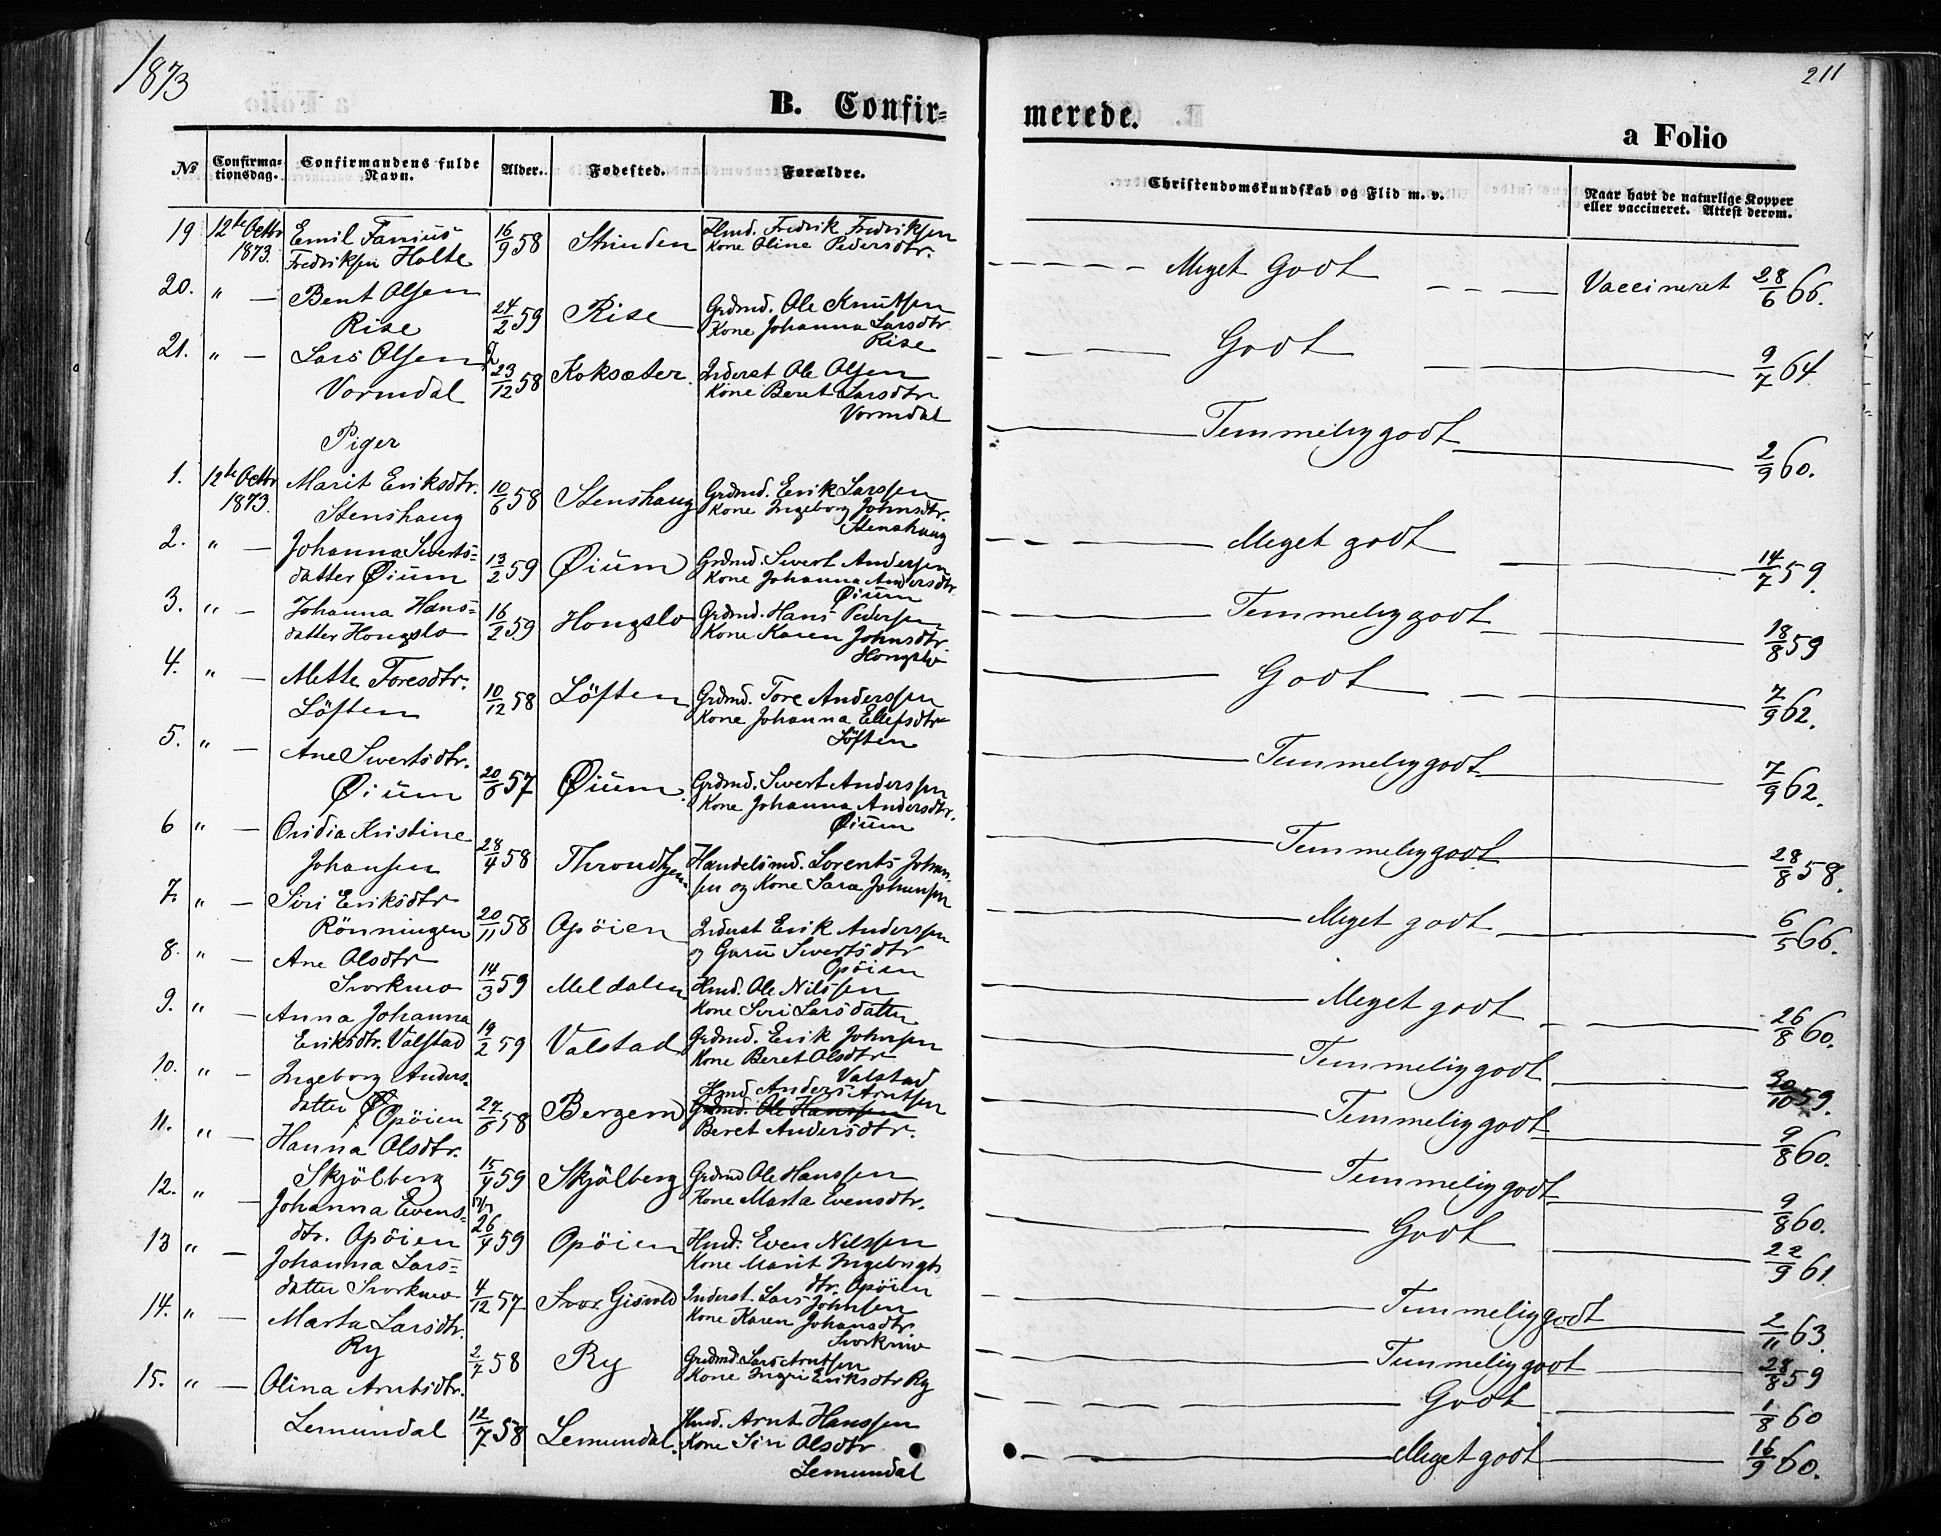 1873
211
B. Confir-
merede.
a Folio
No
Confirma-
tionsdag.
Confirmandens fulde
Navn.
Alder.
Fødested.
Forældre.
Christendomskundskab og Flid m. v.
Naar havt de naturlige Kopper
eller vaccineret. Attest derom.
19 12te Octbr 1873. Emil
Fredriksen Holte 16/9 58 Strinden Hmd. Fredrik Fredriksen
Kone Oline Pedersdtr. Meget Godt Vaccineret 28/6 66.
20. " — Bent Olsen
Rise 24/2 59 Rise Grdmd. Ole Knutsen
Kone Johanna Larsdtr.
Rise Godt 9/7 64
21. " — Lars Olsen
Vormdal 23/12 58 Koksæter. Inderst Ole Olsen
Kone Beret Larsdtr
Vormdal Temmelig godt 2/9 60.
Piger
1. 12te Octbr 1873. Marit Eriksdtr.
Stenshaug 10/6 58 Stenshaug Grdmd. Erik Larssen
Kone Ingeborg Johnsdtr.
Stenshaug Meget godt 14/7 59.
2. " — Johanna Siverts-
datter Øium 13/2 59 Øium Grdmd. Sivert Andersen
Kone Johanna Andersdtr.
Øium Temmelig godt 18/8 59
3. " — Johanna Hans-
datter Hongslo 16/2 59 Hongslo Grdmd. Hans Pedersen
Kone Karen Johnsdtr.
Hongslo Godt 7/9 62.
4. " — Mette Toresdtr.
Löften 10/12 58 Löften Grdmd. Tore Anderssen
Kone Johanna Ellefsdtr
Löften Temmelig godt 7/9 62.
5. " — Ane Sivertsdtr.
Øium 20/6 57 Øium. Grdmd. Sivert Anderssen
Kone Johanna Andersdtr.
Øium Temmelig godt 28/8 58.
6 " — Ovidia Kristine
Johansen 28/4 58 Throndhjem Handelsmd. Lorents Johan-
sen og Kone Sara Johansen Meget godt 6/5 66.
7. " — Siri Eriksdtr
Rönningen 20/11 58 Opöien Inderst Erik Anderssen
og Guru Sivertsdtr
Opöien Meget godt 26/8 60.
8. " — Ane Olsdtr
Svorkmo 14/3 59 Meldalen Hmd. Ole Nilssen
Kone Siri Larsdatter Temmelig godt /10 59.
9. " — Anna Johanna
Eriksdtr. Valstad 19/2 59 Valstad Grdmd. Erik Johnsen
Kone Beret Olsdtr
Valstad Temmelig godt 9/8 60.
10. " — Ingeborg Anders-
datter Opöien 27/6 58 Bergem Hmd. Anders Arntsen
Grdmd. Ole Hanssen
Beret Andersdtr. Temmelig godt 9/8 60.
11. " — Hanna Olsdtr.
Skjölberg 15/4 59 Skjölberg Grdmd Ole Hanssen
Kone Marta Evensdtr. Godt 22/9 61.
12. " — Johanna Evens-
dtr. Opöien 26/4 59 Opöien Hmd. Even Nilssen
Kone Marit Ingebrigts
dtr. Opöien Temmelig godt 2/11 63.
13 " — Johanna Lars-
datter Svorkmo 4/12 57 Svor Gisvold Inderst. Lars Johnsen
Kone Karen Johansdtr
Svorkmo Temmelig godt 28/8 59
14. " — Marta Larsdtr.
Ry 2/7 58 Ry Grdmd. Lars Arntsen
Kone Ingri Eriksdtr Ry Godt 1/8 60
15. " — Olina Arntsdtr.
Lemundal 12/7 58 Lemundal. Hmd. Arnt Hanssen
Kone Siri Olsdtr
Lemundal Meget godt 16/9 60.